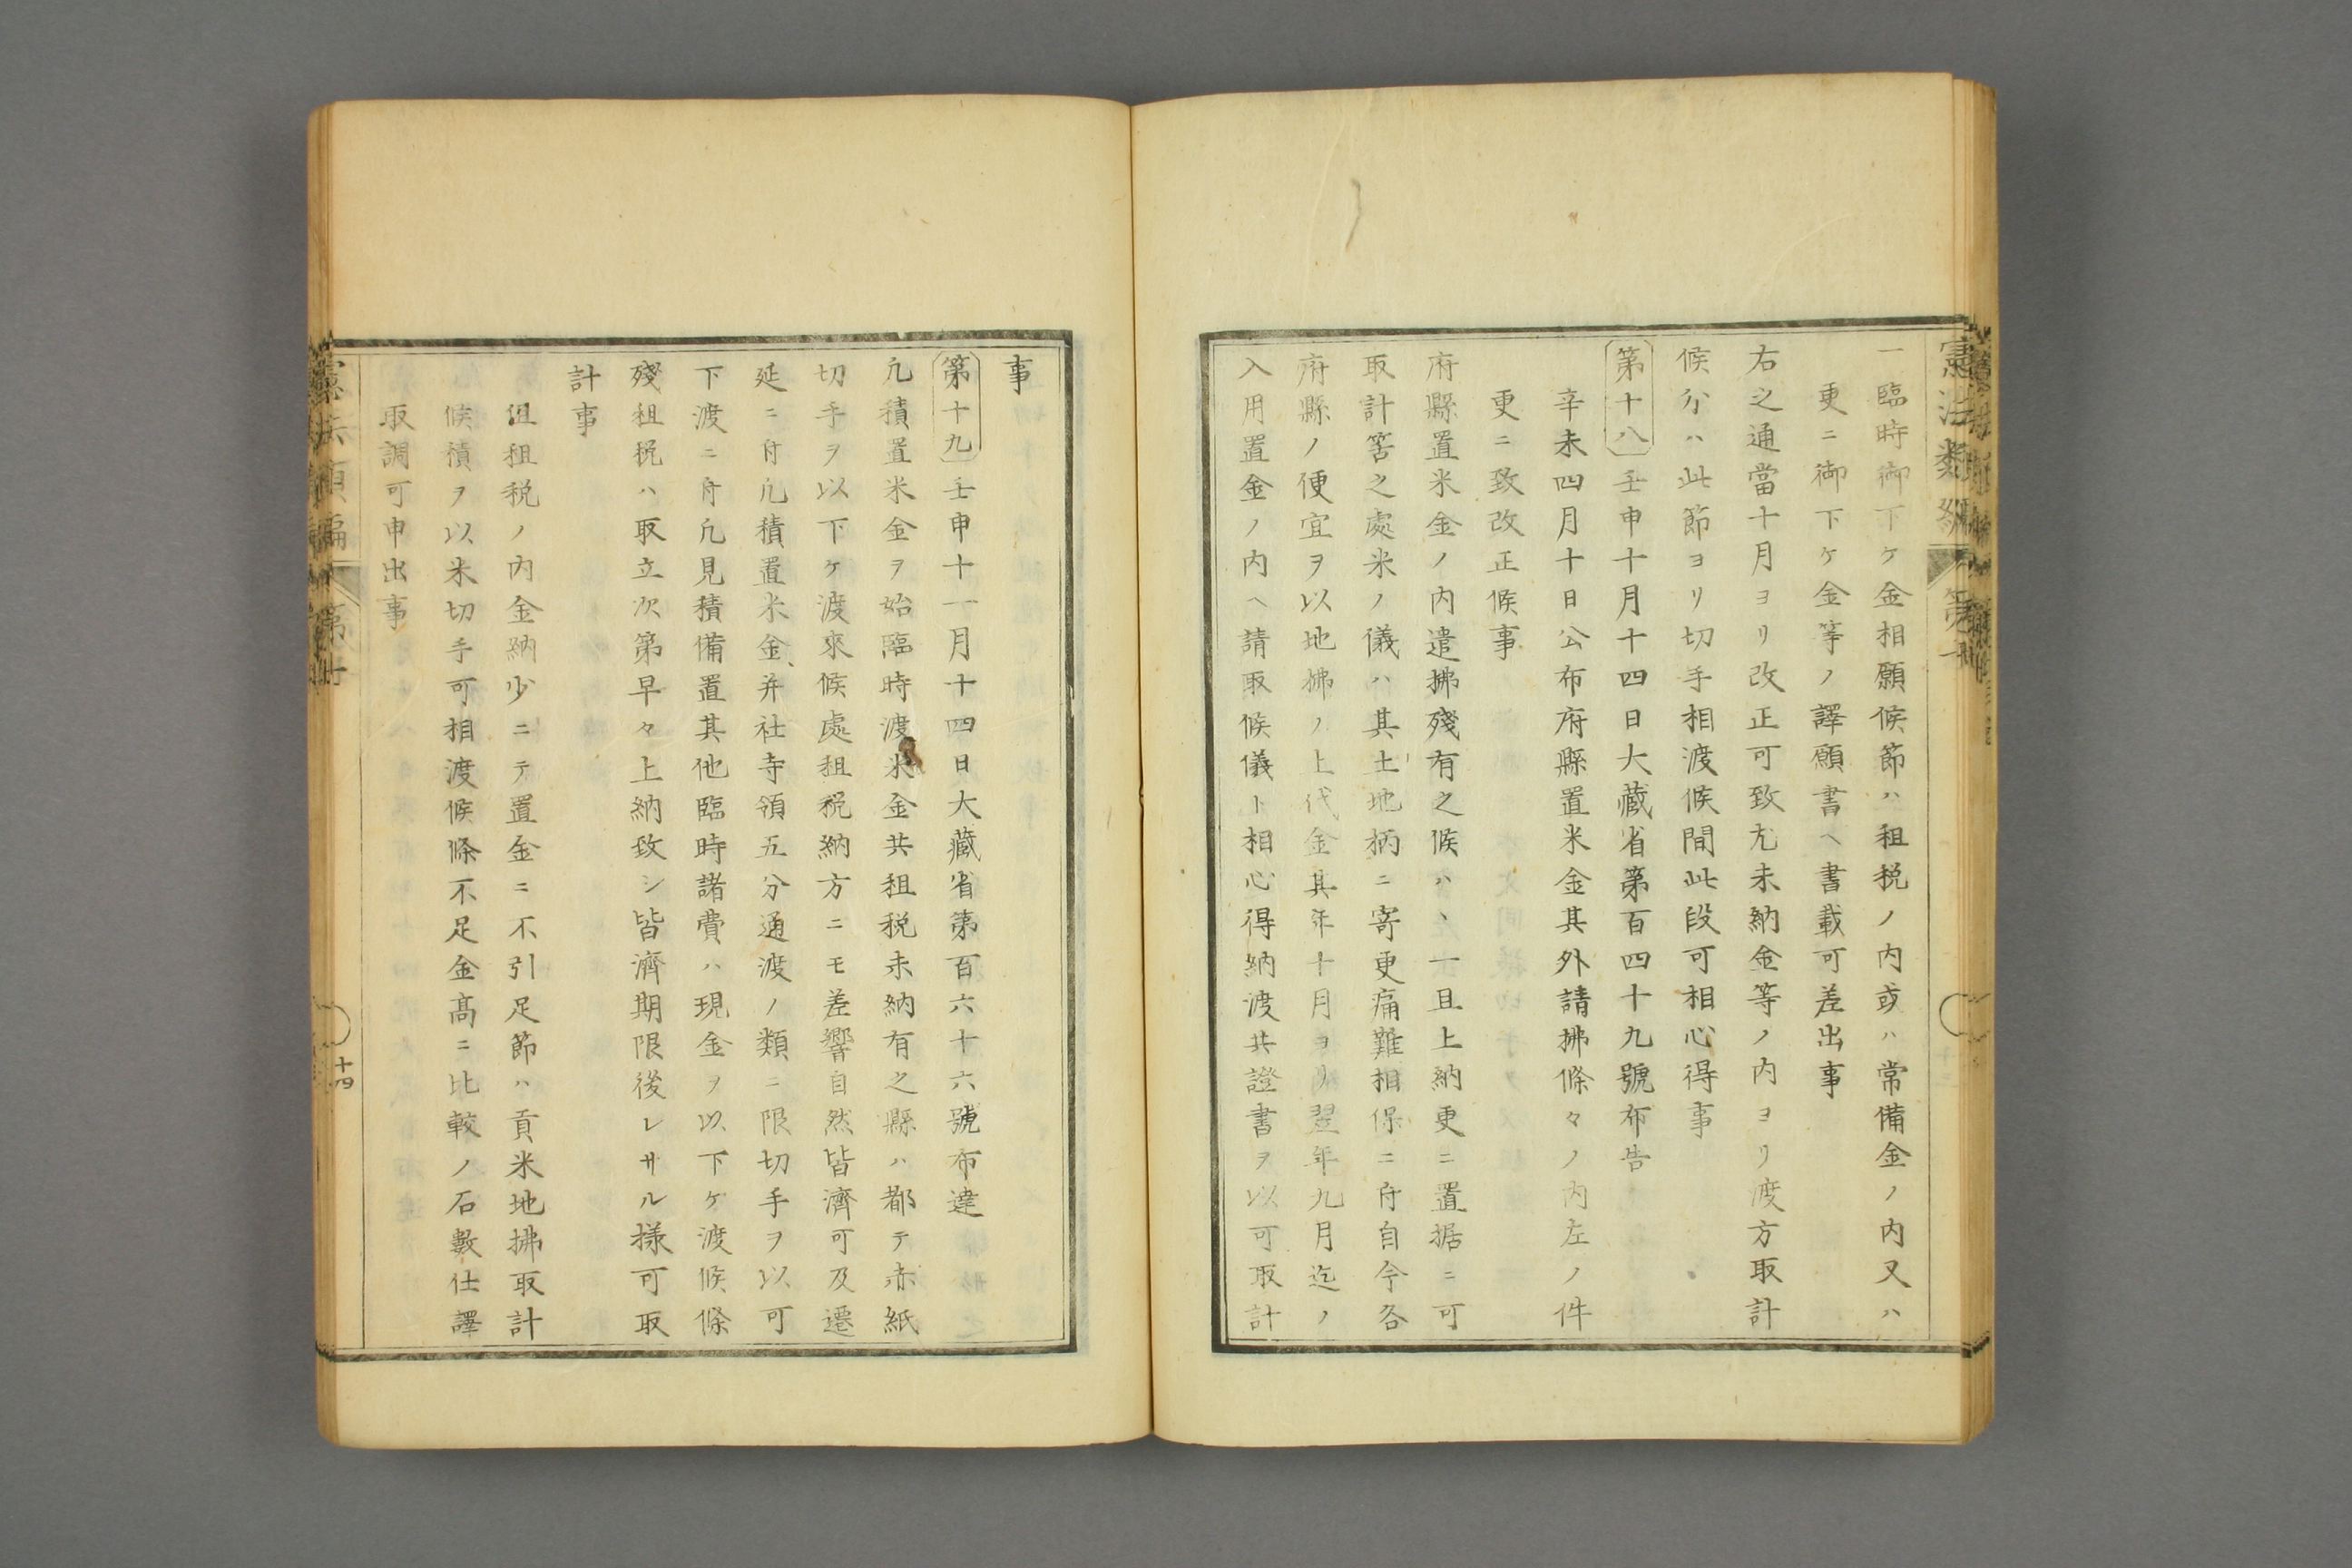 一臨時御下ケ金相願候節ハ租税ノ内或ハ常備金ノ内又ハ
更ニ御下ケ金等ノ譯願書ヘ書載可差出事
右之通當十月ヨリ改正可致尤未納金等ノ内ヨリ渡方取計
候分ハ此節ヨリ切手相渡候間此段可相心得事
第十八壬申十月十四日大藏省第百四十九號布告
辛未四月十日公布府縣置米金其外請拂條々ノ内左ノ件
更ニ致改正候事
府縣置米金ノ内遣拂殘有之候ハヽ一旦上納更ニ置据ニ可
取計筈之處米ノ儀ハ其土地柄ニ寄更痛難相保ニ付自今各
府縣ノ便宜ヲ以地拂ノ上代金其年十月ヨリ翌年九月迄ノ
入用置金ノ内ヘ請取候儀ト相心得納渡共證書ヲ以可取計
事
第十九壬申十一月十四日大藏省第百六十六號布達
凢積置米金ヲ始臨時渡米金共租税未納有之縣ハ都テ赤紙
切手ヲ以下ケ渡來候處租税納方ニモ差響自然皆濟可及遷
延ニ付凢積置米金并社寺領五分通渡ノ類ニ限切手ヲ以可
下渡ニ付凢見積備置其他臨時諸費ハ現金ヲ以下ケ渡候條
殘租税ハ取立次第早々上納致シ皆濟期限後レサル様可取
計事
但租税ノ内金納少ニテ置金ニ不引足節ハ貢米地拂取計
候積ヲ以米切手可相渡候條不足金高ニ比較ノ石數仕譯
取調可申出事
十四